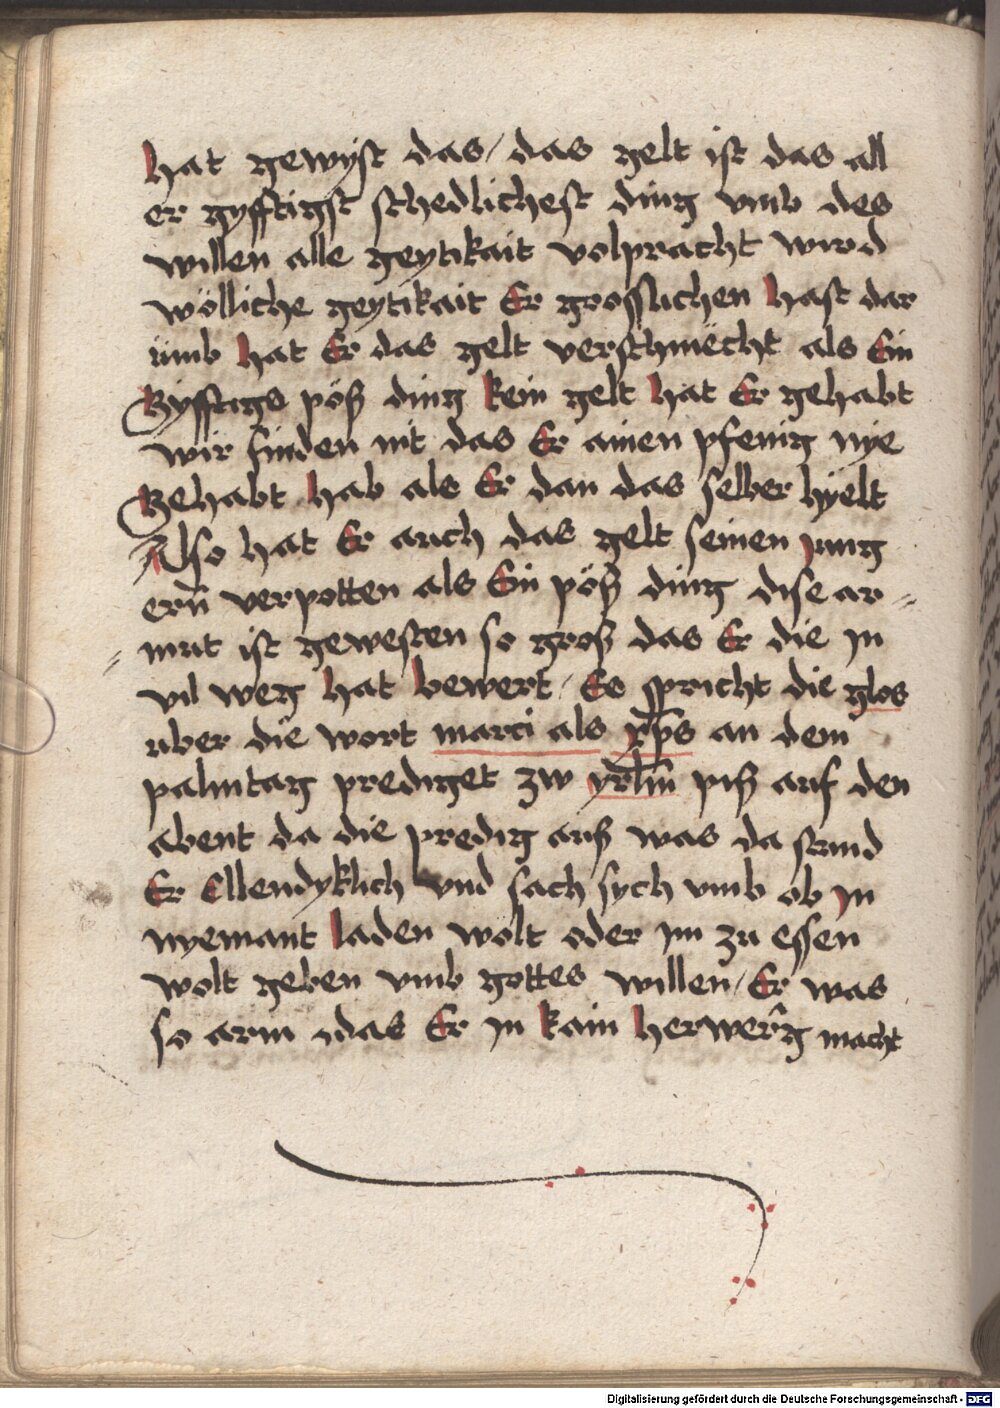 hat gewyst das / das gelt ist das all
er gyfftigst schedlichest ding vmb des
willen alle geytikait volpracht wird
wölliche geytikait Er grosslichen hast dar
ümb hat Er das gelt verschmëcht als Ein
Gyfftigs pöß ding kein gelt hat Er gehabt
wir finden nit das Er ainen pfenig nye
Gehabt hab als Er dan das selber hyelt
Also hat Er auch das gelt seinen Jung
ern̄ verpotten als Ein pöß ding dise ar=
mut ist gewesten so groß das Er die Jn
vil weg hat bewert / Es spricht die glos
uber die wort marci als xp̄s an dem
palmtag prediget zw yrl̄m piß auf den
abent da die predig auß was da stund
Er Ellendyklich vnd sach sych vmb ob Jn
nyemant laden wolt oder im zu essen
wolt geben vmb gottes willen / Er was
so arm das Er Jn kain herwerg macht
Digitalisierung gefördert durch die Deutsche Forschungsgemeinschaft - DFG